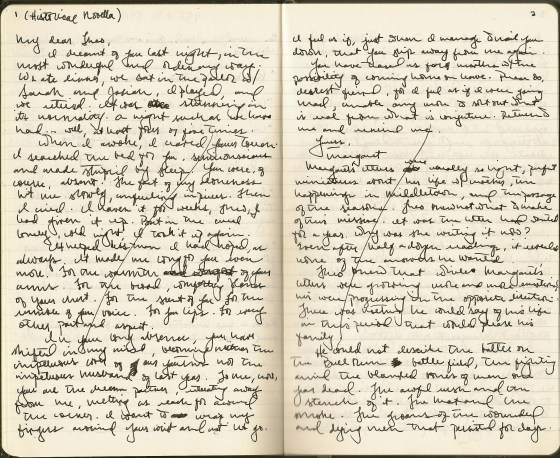 1 (Historical Novella)
My dear Theo,
I dreamt of you last night, in the
most wonderful and ordinary ways.
We ate dinner, we sat in the parlor w/
Sarah and Josiah, I played, and
we retired. It was stunning in
its normality. A night such as we have
had – well, at least tens of fine times.
When I awoke, I craved your touch.
I searched the bed for you, semiconscious
and made stupid by sleep. You were, of
course, absent. The fact of my loneness
hit me slowly, unfolding in pieces. Then
I cried. I haven't for weeks, Theo, I
had given it up. But in the cruel
lonely, cold night I took it up again.
It helped less than I had hoped, as
always. It made me long for you even
more. For the warmth of your
arms. For the broad, comforting planes
of your chest. For the scent of you. For the
timbre of your voice. For your lips. For every
other part and aspect.
In your long absence, you have
shifted in my mind, becoming neither the
impetuous lord of our youth nor the
impetuous husband of last year. To me, now,
you are the dream person, away
from me, melting as I reach for around
the corner. I want to wrap my
fingers around your wrist and not let go.
2
I feel as if, just when I manage to nail you
down, that you slip away from me again.
You have teased us for months w/ the
possibility of coming home on leave. Please do,
dearest friend, for I feel as if I were going
mad, unable any more to sort out what
is real from what is conjecture. Return to
me and remind me.
Yours,
Margaret
Margaret's letters were usually so light, polite
about her life w/ his sister, the
happenings in Middletown, and the passage
of the seasons. Theo knew not what to make
of this missive. It was the letter he'd wanted
for a year. Why was she writing it now?
Even after half a dozen readings, it revealed
none of the answers he wanted.
Theo knew that where Margaret's
letters were growing more and more emotional
his were progressing in the opposite direction.
There was nothing he could say of his life
in this period that would please his
family.
He could not describe the battles on
the Bull Run battlefield, the fighting
amid the blanched bones of men one
year dead. The awful wash and the
stench of it. The heat and the
smoke. The groans of the wounded
and dying men that persisted for days.